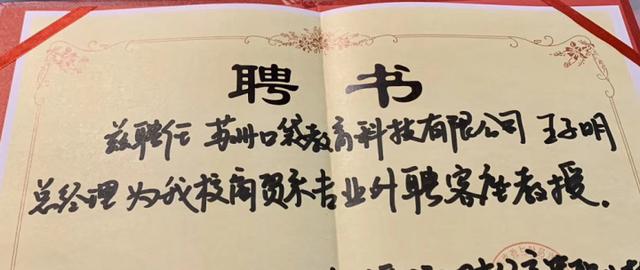 聘书
兹聘任 苏州口袋教育科技有限公司 王子明
总经理为我校商贸系专业外聘客座教授.